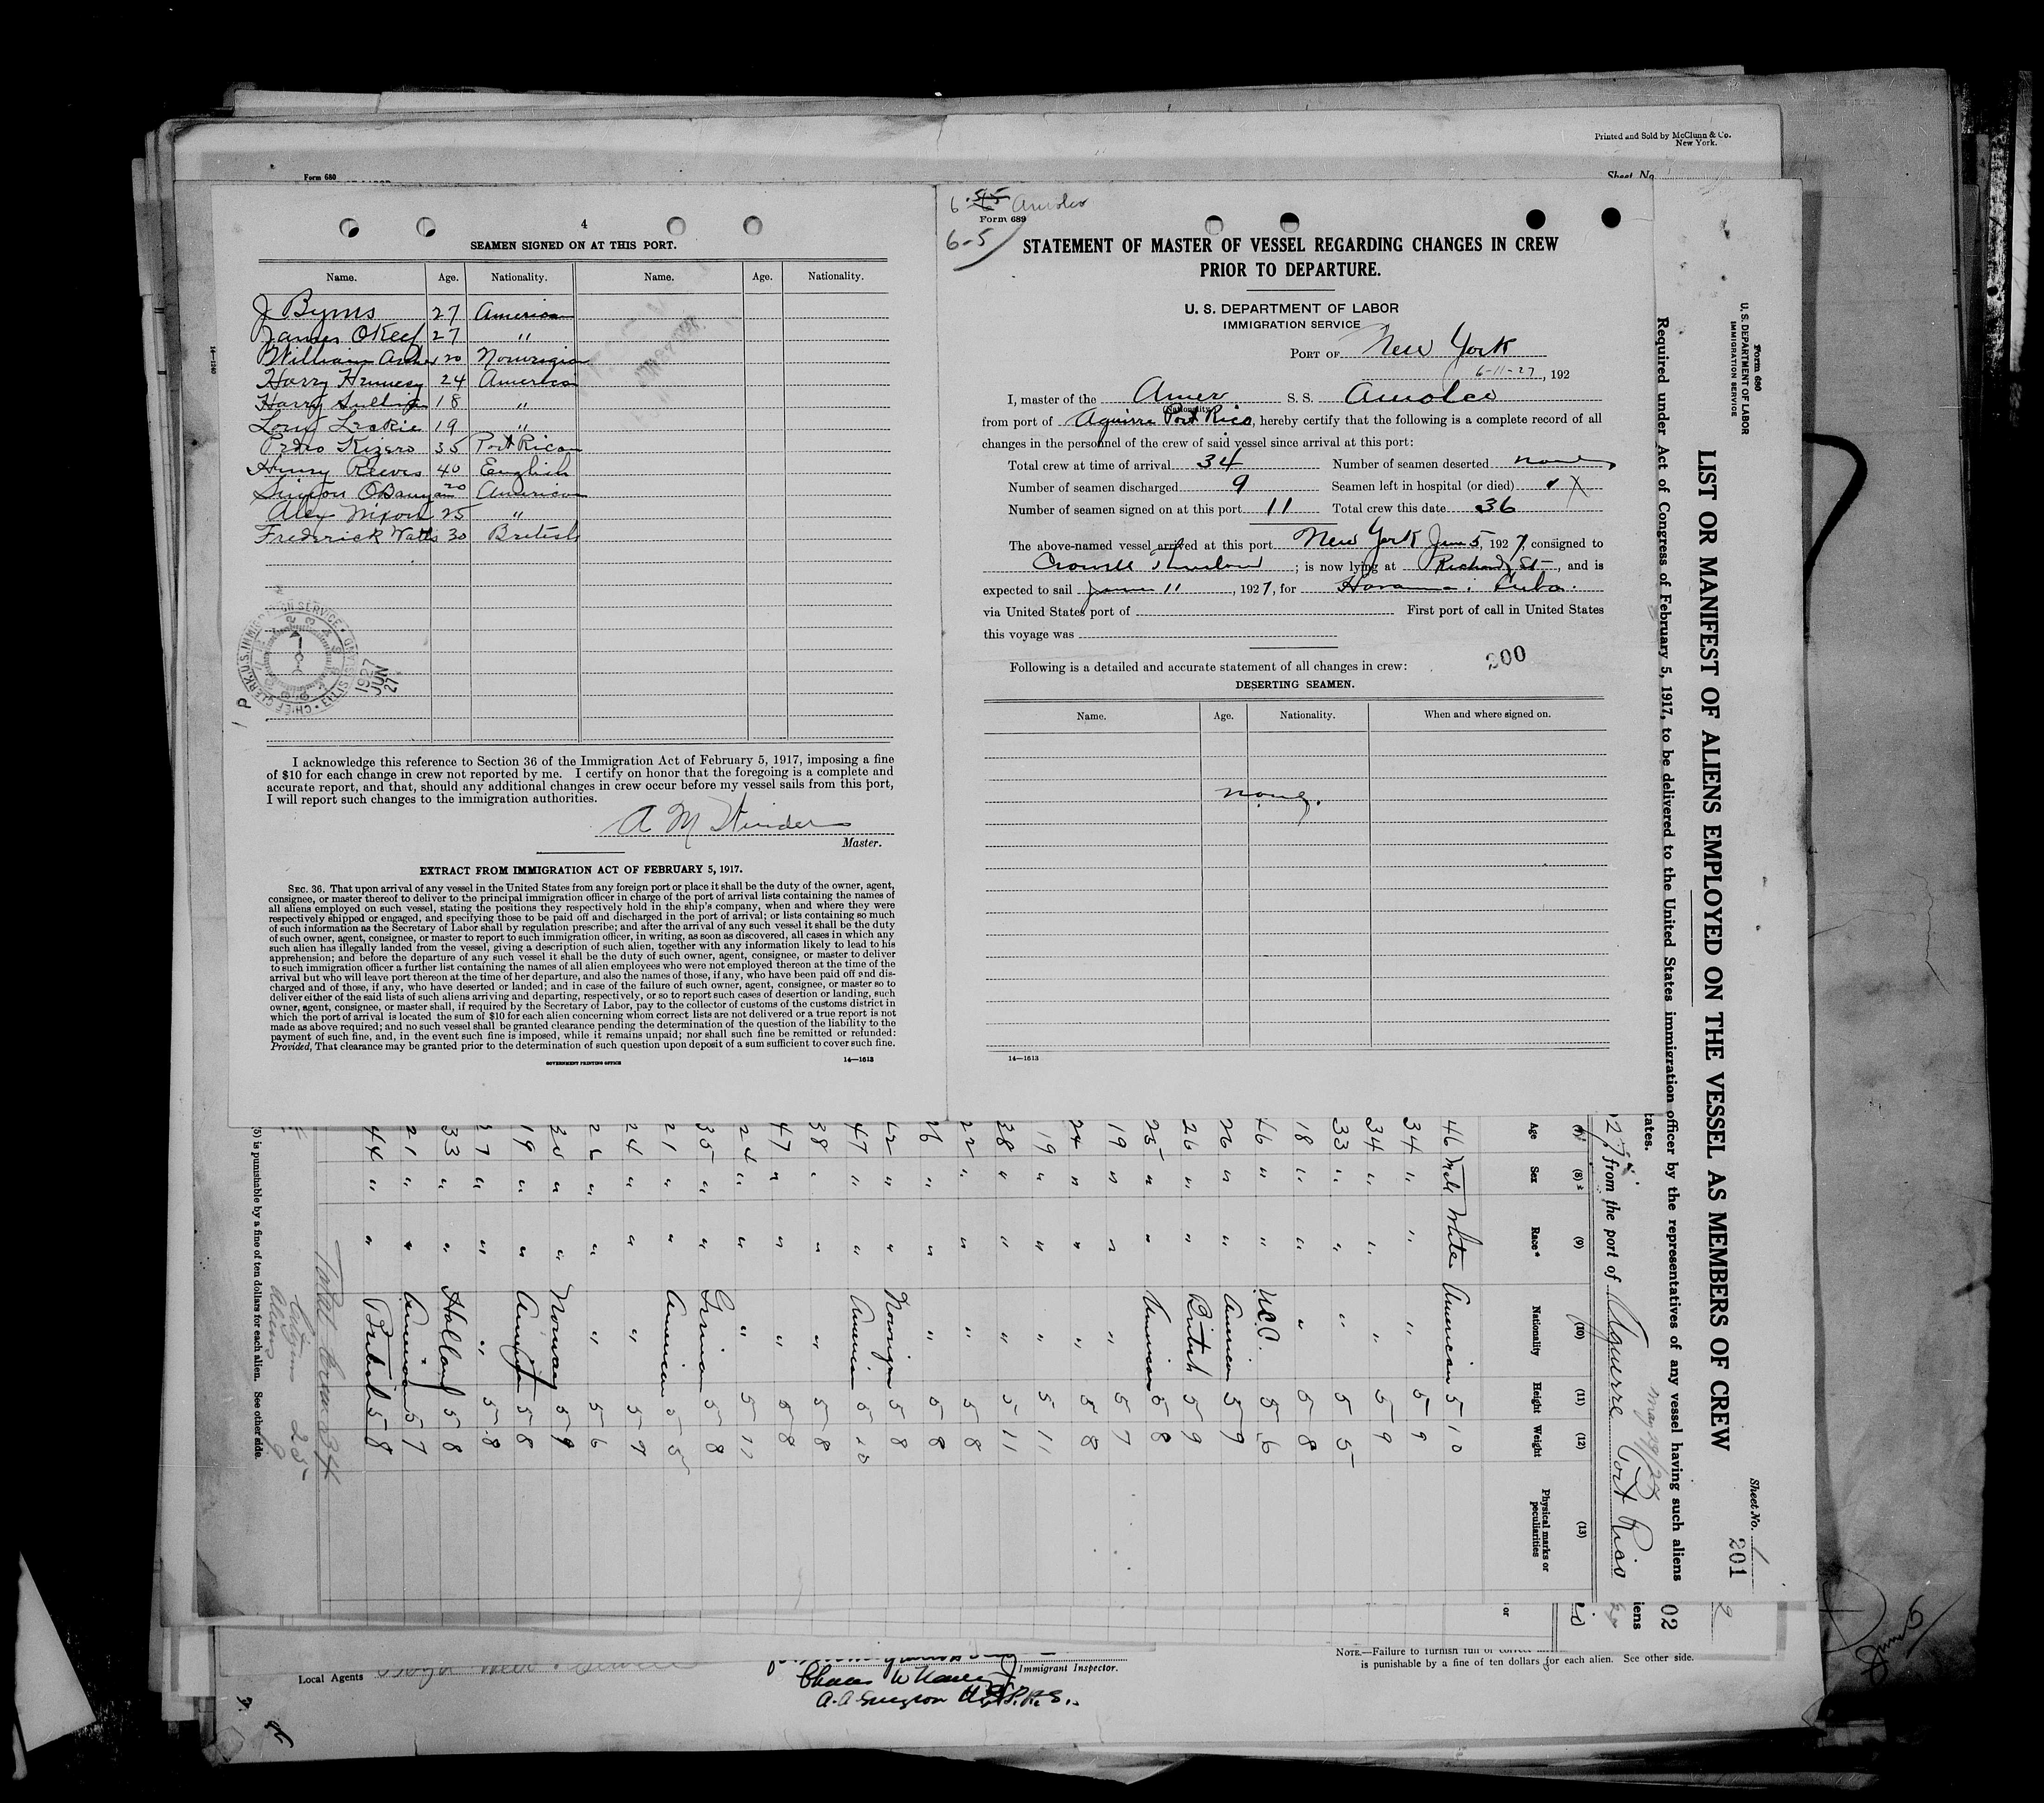 Printed and Sold by McClunn & Co.
New York.
Form 680
Sheet No.
4
SEAMEN SIGNED ON AT THIS PORT.
Name. Age. Nationality. Name. Age. Nationality.
J Byrns 27 American
James OKeef 27 "
William 20 Norwigian
Harry Hennesy 24 American
Harry 18 "
Leckie 19 "
Pedro 35 Port Rican
Henry Reeves 40 English
20 American
Alex Nixon 25 "
Frederick Watts 30 British
CHIEF CLERK, U.S. IMMIGRATION SERVICE
ELLIS ISLAND
1927
JUN
27
P
14—1240
I acknowledge this reference to Section 36 of the Immigration Act of February 5, 1917, imposing a fine
of $10 for each change in crew not reported by me. I certify on honor that the foregoing is a complete and
accurate report, and that, should any additional changes in crew occur before my vessel sails from this port,
I will report such changes to the immigration authorities.
A M
Master.
EXTRACT FROM IMMIGRATION ACT OF FEBRUARY 5, 1917.
SEC. 36. That upon arrival of any vessel in the United States from any foreign port or place it shall be the duty of the owner, agent,
consignee, or master thereof to deliver to the principal immigration officer in charge of the port of arrival lists containing the names of
all aliens employed on such vessel, stating the positions they respectively hold in the ship's company, when and where they were
respectively shipped or engaged, and specifying those to be paid off and discharged in the port of arrival; or lists containing so much
of such information as the Secretary of Labor shall by regulation prescribe; and after the arrival of any such vessel it shall be the duty
of such owner, agent, consignee, or master to report to such immigration officer, in writing, as soon as discovered, all cases in which any
such alien has illegally landed from the vessel, giving a description of such alien, together with any information likely to lead to his
apprehension; and before the departure of any such vessel it shall be the duty of such owner, agent, consignee, or master to deliver
to such immigration officer a further list containing the names of all alien employees who were not employed thereon at the time of the
arrival but who will leave port thereon at the time of her departure, and also the names of those, if any, who have been paid off and dis-
charged and of those, if any, who have deserted or landed; and in case of the failure of such owner, agent, consignee, or master so to
deliver either of the said lists of such aliens arriving and departing, respectively, or so to report such cases of desertion or landing, such
owner, agent, consignee, or master shall, if required by the Secretary of Labor, pay to the collector of customs of the customs district in
which the port of arrival is located the sum of $10 for each alien concerning whom correct lists are not delivered or a true report is not
made as above required; and no such vessel shall be granted clearance pending the determination of the question of the liability to the
payment of such fine, and, in the event such fine is imposed, while it remains unpaid; nor shall such fine be remitted or refunded:
Provided, That clearance may be granted prior to the determination of such question upon deposit of a sum sufficient to cover such fine.
GOVERNMENT PRINTING OFFICE
14—1613
Form 689
6-5
STATEMENT OF MASTER OF VESSEL REGARDING CHANGES IN CREW
PRIOR TO DEPARTURE.
U. S. DEPARTMENT OF LABOR
IMMIGRATION SERVICE
PORT OF New York
6-11-27, 192
I, master of the Amer S. S. Amolco
(Nationality)
from port of Aguirre Port Rico, hereby certify that the following is a complete record of all
changes in the personnel of the crew of said vessel since arrival at this port:
Total crew at time of arrival 34 Number of seamen deserted none
Number of seamen discharged 9 Seamen left in hospital (or died)
Number of seamen signed on at this port 11 Total crew this date 36
The above-named vessel arrived at this port New York June 5, 1927, consigned to
Crowell Thurlow; is now lying at Richards St, and is
expected to sail June 11, 1927, for Havana Cuba.
via United States port of First port of call in United States
this voyage was
200
Following is a detailed and accurate statement of all changes in crew:
DESERTING SEAMEN.
Name. Age. Nationality. When and where signed on.
none.
14—1613
Form 680
U. S. DEPARTMENT OF LABOR
IMMIGRATION SERVICE
LIST OR MANIFEST OF ALIENS EMPLOYED ON THE VESSEL AS MEMBERS OF CREW
Sheet No. 1
201
Required under Act of Congress of February 5, 1917, to be delivered to the United States immigration officer by the representatives of any vessel having such aliens
from the port of Aguirre Port Rico
(8) (9) (10) (11) (12) (13)
Age Sex Race* Nationality Height Weight Physical marks or peculiarities
46 Male White American 5 10
34 " " " 5 9
34 " " " 5 9
33 " " " 5 5
18 " " " 5 8
46 " " 5 6
26 " " American 5 9
26 " " British 5 9
25 " " American 5 8
19 " " " 5 7
24 " " " 5 8
19 " " " 5 11
38 " " " 5 11
22 " " " 5 8
26 " " " 5 8
" " Norwigian 5 8
47 " " American 5 10
38 " " " 5 8
47 " " " 5 8
24 " " " 5
35 " " German 5 8
21 " " American 5 5
24 " " " 5 7
" " " 5 6
" " Norway 5 9
19 " " 5 8
27 " " " 5 8
33 " " Holland 5 8
21 " " American 5 7
44 " " British 5 8
Total Crew 34
Citizens 25
Aliens 9
(5) is punishable by a fine of ten dollars for each alien. See other side.
02
Local Agents
Immigrant Inspector.
NOTE.—Failure to furnish full or correct
is punishable by a fine of ten dollars for each alien. See other side.
June 6